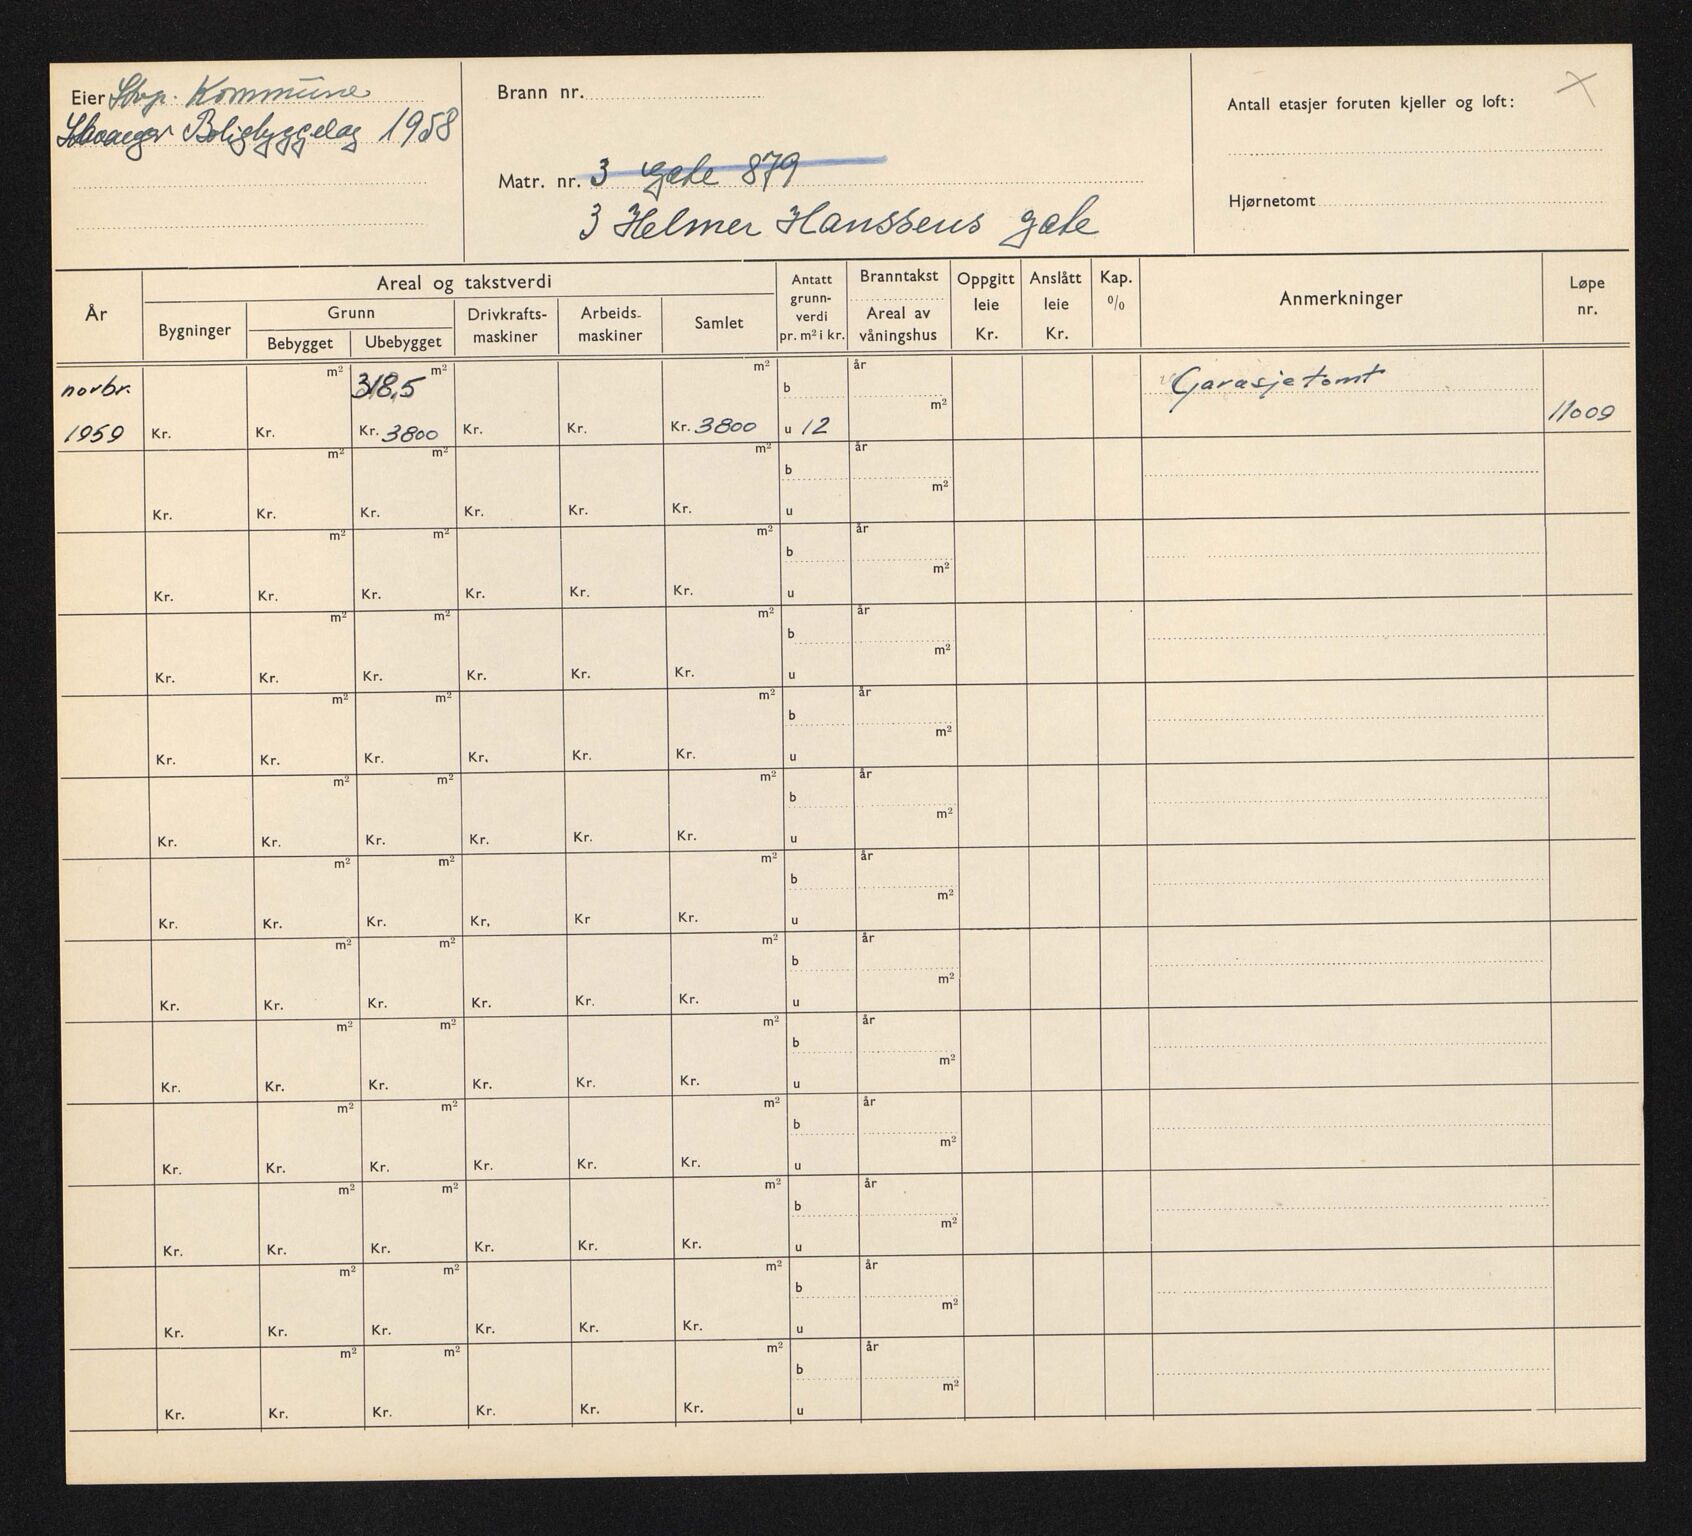 Eier Stvgr. Kommune
Stavanger Boligbyggelag 1958
Brann nr.
Matr. nr. 3 Gate 879
3 Helmer Hanssens gate
Antall etasjer foruten kjeller og loft:
Hjørnetomt
År
Areal og takstverdi
Bygninger
Grunn
Bebygget
Ubebygget
Drivkrafts-
maskiner
Arbeids-
maskiner
Samlet
Antatt
grunn-
verdi
pr. m² i kr.
Branntakst
Areal av
våningshus
Oppgitt
leie
Kr.
Anslått
leie
Kr.
Kap.
%
Anmerkninger
Løpe
nr.
norbr. m² 318,5 m² m² b år m² Garasjetomt
1959 Kr. Kr. Kr. 3800 Kr. Kr. Kr. 3800 u 12 11009
m² m² m² b år m²
Kr. Kr. Kr. Kr. Kr. Kr. u
m² m² m² b år m²
Kr. Kr. Kr. Kr. Kr. Kr. u
m² m² m² b år m²
Kr. Kr. Kr. Kr. Kr. Kr. u
m² m² m² b år m²
Kr. Kr. Kr. Kr. Kr. Kr. u
m² m² m² b år m²
Kr. Kr. Kr. Kr. Kr. Kr. u
m² m² m² b år m²
Kr. Kr. Kr. Kr. Kr Kr. u
m² m² m² b år m²
Kr. Kr. Kr. Kr. Kr. Kr. u
m² m² m² b år m²
Kr. Kr. Kr. Kr. Kr. Kr. u
m² m² m² b år m²
Kr. Kr. Kr. Kr. Kr. Kr. u
m² m² m² b år m²
Kr. Kr. Kr. Kr. Kr. Kr. u
m² m² m² b år m²
Kr. Kr. Kr. Kr. Kr. Kr. u
m² m² m² b år m²
Kr. Kr. Kr. Kr. Kr. Kr. u